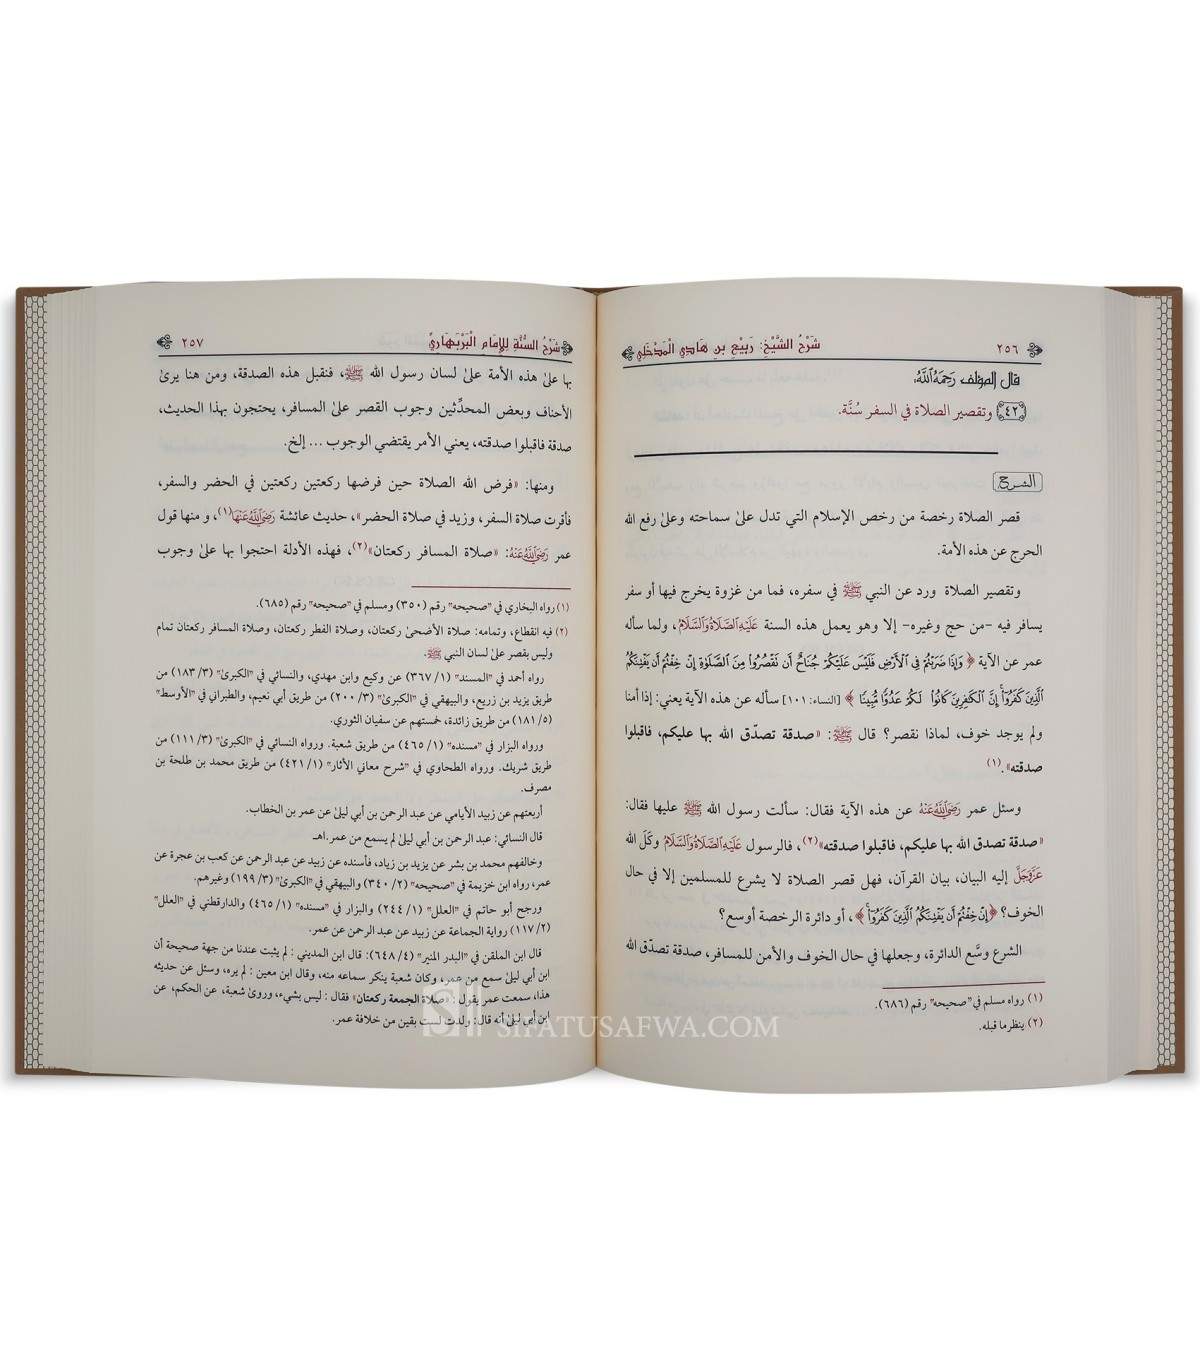 ٢٥٦
شَرْحُ الشَّيْخِ: رَبِيْعِ بنِ هَادِي الْمَدْخَلِي
قال المؤلف رَحِمَهُ اللَّهُ:
٤٢ وتقصير الصلاة في السفر سُنَّة.
الشرح
قصر الصلاة رخصة من رخص الإسلام التي تدل علىٰ سماحته وعلىٰ رفع الله
الحرج عن هذه الأمة.
وتقصير الصلاة ورد عن النبي ﷺ في سفره، فما من غزوة يخرج فيها أو سفر
يسافر فيه -من حج وغيره- إلا وهو يعمل هذه السنة عَلَيْهِ الصَّلَاةُ وَالسَّلَامُ، ولما سأله
عمر عن الآية ﴿وَإِذَا ضَرَبْتُمْ فِي ٱلْأَرْضِ فَلَيْسَ عَلَيْكُمْ جُنَاحٌ أَن تَقْصُرُوا۟ مِنَ ٱلصَّلَوٰةِ إِنْ خِفْتُمْ أَن يَفْتِنَكُمُ
ٱلَّذِينَ كَفَرُوٓا۟ إِنَّ ٱلْكَٰفِرِينَ كَانُوا۟ لَكُمْ عَدُوًّا مُّبِينًا﴾ [النساء: ١٠١] سأله عن هذه الآية يعني: إذا أمنا
ولم يوجد خوف، لماذا نقصر؟ قال ﷺ: «صدقة تصدّق الله بها عليكم، فاقبلوا
صدقته».(١)
وسئل عمر رَضِيَ اللَّهُ عَنْهُ عن هذه الآية فقال: سألت رسول الله ﷺ عليها فقال:
«صدقة تصدق الله بها عليكم، فاقبلوا صدقته»(٢)، فالرسول عَلَيْهِ الصَّلَاةُ وَالسَّلَامُ وكَلَ الله
عَزَّوَجَلَّ إليه البيان، بيان القرآن، فهل قصر الصلاة لا يشرع للمسلمين إلا في حال
الخوف؟ ﴿إِنْ خِفْتُمْ أَن يَفْتِنَكُمُ ٱلَّذِينَ كَفَرُوٓا۟﴾، أو دائرة الرخصة أوسع؟
الشرع وسَّع الدائرة، وجعلها في حال الخوف والأمن للمسافر، صدقة تصدّق الله
(١) رواه مسلم في "صحيحه" رقم (٦٨٦).
(٢) ينظر ما قبله.
شَرْحُ السُّنَّةِ لِلإِمَامِ الْبَرْبَهَارِيِّ
٢٥٧
بها علىٰ هذه الأمة علىٰ لسان رسول الله ﷺ، فنقبل هذه الصدقة، ومن هنا يرىٰ
الأحناف وبعض المحدِّثين وجوب القصر علىٰ المسافر، يحتجون بهذا الحديث،
صدقة فاقبلوا صدقته، يعني الأمر يقتضي الوجوب ... إلخ.
ومنها: «فرض الله الصلاة حين فرضها ركعتين ركعتين في الحضر والسفر،
فأقرت صلاة السفر، وزيد في صلاة الحضر»، حديث عائشة رَضِيَ اللَّهُ عَنْهَا(١)، و منها قول
عمر رَضِيَ اللَّهُ عَنْهُ: «صلاة المسافر ركعتان»(٢)، فهذه الأدلة احتجوا بها علىٰ وجوب
(١) رواه البخاري في "صحيحه" رقم (٣٥٠) ومسلم في "صحيحه" رقم (٦٨٥).
(٢) فيه انقطاع، وتمامه: صلاة الأضحىٰ ركعتان، وصلاة الفطر ركعتان، وصلاة المسافر ركعتان تمام
وليس بقصر علىٰ لسان النبي ﷺ.
رواه أحمد في "المسند" (١/ ٣٦٧) عن وكيع وابن مهدي، والنسائي في "الكبرىٰ" (٣/ ١٨٣) من
طريق يزيد بن زريع، والبيهقي في "الكبرىٰ" (٣/ ٢٠٠) من طريق أبي نعيم، والطبراني في "الأوسط"
(٥/ ١٨١) من طريق زائدة، خمستهم عن سفيان الثوري.
ورواه البزار في "مسنده" (١/ ٤٦٥) من طريق شعبة. ورواه النسائي في "الكبرىٰ" (٣/ ١١١) من
طريق شريك. ورواه الطحاوي في "شرح معاني الآثار" (١/ ٤٢١) من طريق محمد بن طلحة بن
مصرف.
أربعتهم عن زبيد الأيامي عن عبد الرحمن بن أبي ليلىٰ عن عمر بن الخطاب.
قال النسائي: عبد الرحمن بن أبي ليلىٰ لم يسمع من عمر.اهـ
وخالفهم محمد بن بشر عن يزيد بن زياد، فأسنده عن زبيد عن عبد الرحمن عن كعب بن عجرة عن
عمر، رواه ابن خزيمة في "صحيحه" (٢/ ٣٤٠) والبيهقي في "الكبرىٰ" (٣/ ١٩٩) وغيرهم.
ورجح أبو حاتم في "العلل" (١/ ٢٤٤) والبزار في "مسنده" (١/ ٤٦٥) والدارقطني في "العلل"
(٢/ ١١٧) رواية الجماعة عن زبيد عن عبد الرحمن عن عمر.
قال ابن الملقن في "البدر المنير" (٤/ ٦٤٨): قال ابن المديني : لم يثبت عندنا من جهة صحيحة أن
ابن أبي ليلىٰ سمع من عمر، وكان شعبة ينكر سماعه منه، وقال ابن معين : لم يره، وسئل عن حديثه
هذا، سمعت عمر يقول: «صلاة الجمعة ركعتان» فقال : ليس بشيء، وروىٰ شعبة، عن الحكم، عن
ابن أبي ليلىٰ أنه قال: ولدت لست بقين من خلافة عمر.
SIFATUSAFWA.COM